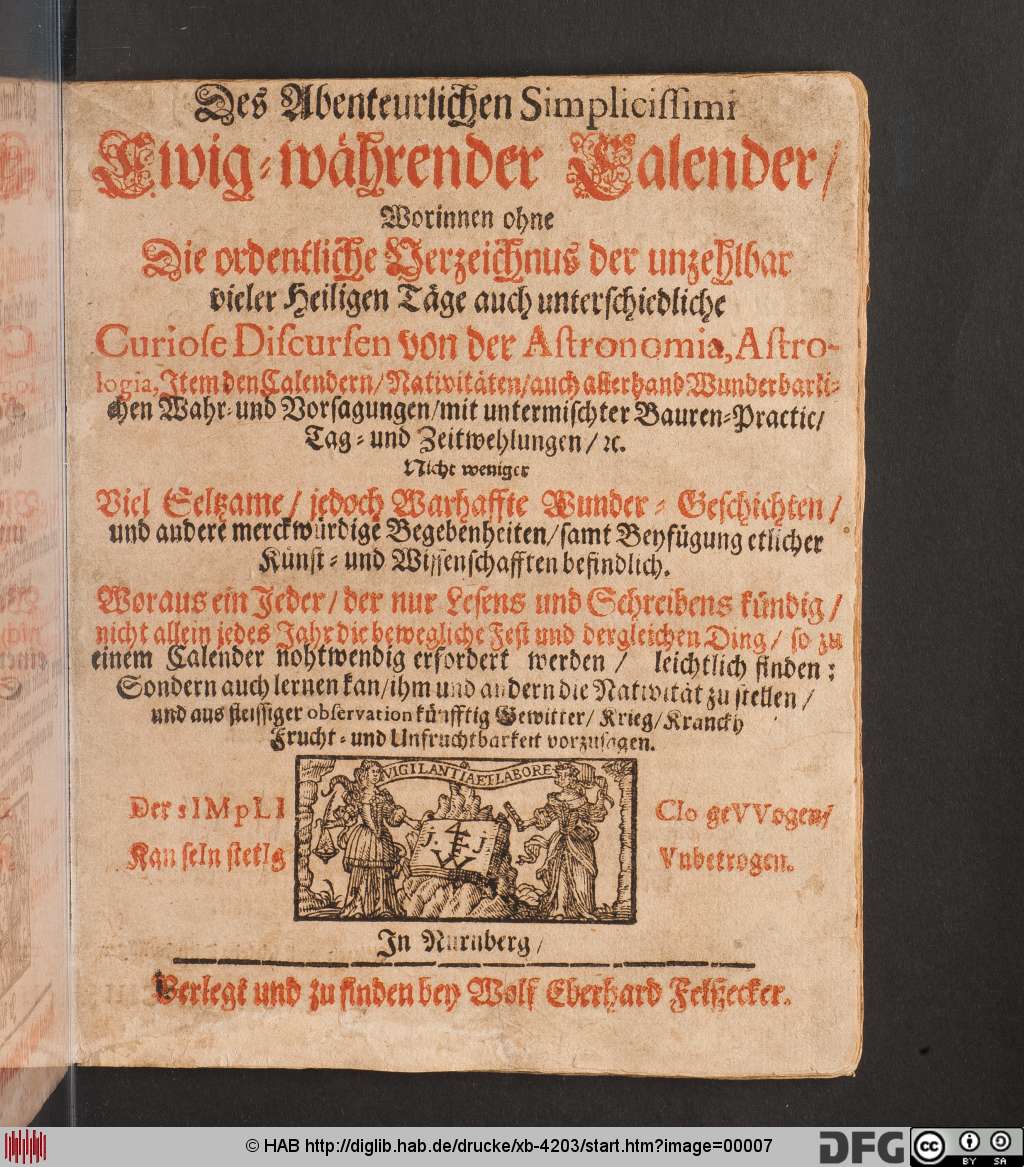 Des Abenteurlichen Simplicissimi
Ewig-währender Calender/
Worinnen ohne
Die ordentliche Verzeichnus der unzehlbar
vieler Heiligen Täge auch unterschiedliche
Curiose Discursen von der Astronomia, Astro-
logia, Item den Calendern/ Nativitäten/ auch allerhand Wunderbarli-
chen Wahr- und Vorsagungen/ mit untermischter Bauren-Practic/
Tag- und Zeitwehlungen/ ꝛc.
Nicht weniger
Viel Seltzame/ jedoch Warhaffte Wunder-Geschichten/
und andere merckwürdige Begebenheiten/ samt Beyfügung etlicher
Künst- und Wissenschafften befindlich.
Woraus ein Jeder/ der nur Lesens und Schreibens kündig/
nicht allein jedes Jahr die bewegliche Fest und dergleichen Ding/ so zu
einem Calender nohtwendig erfordert werden/ leichtlich finden:
Sondern auch lernen kan/ ihm und andern die Nativität zu stellen/
und aus fleissiger observation künfftig Gewitter/ Krieg/ Kranckh
Frucht- und Unfruchtbarkeit vorzusagen.
VIGILANTIA ET LABORE
Der sIMpLI CIo geVVogen/
J. 4 J
W
Kan seIn stetIg Vnbetrogen.
In Nürnberg/
Verlegt und zu finden bey Wolf Eberhard Felßecker.
© HAB http://diglib.hab.de/drucke/xb-4203/start.htm?image=00007
DFG
cc
BY SA